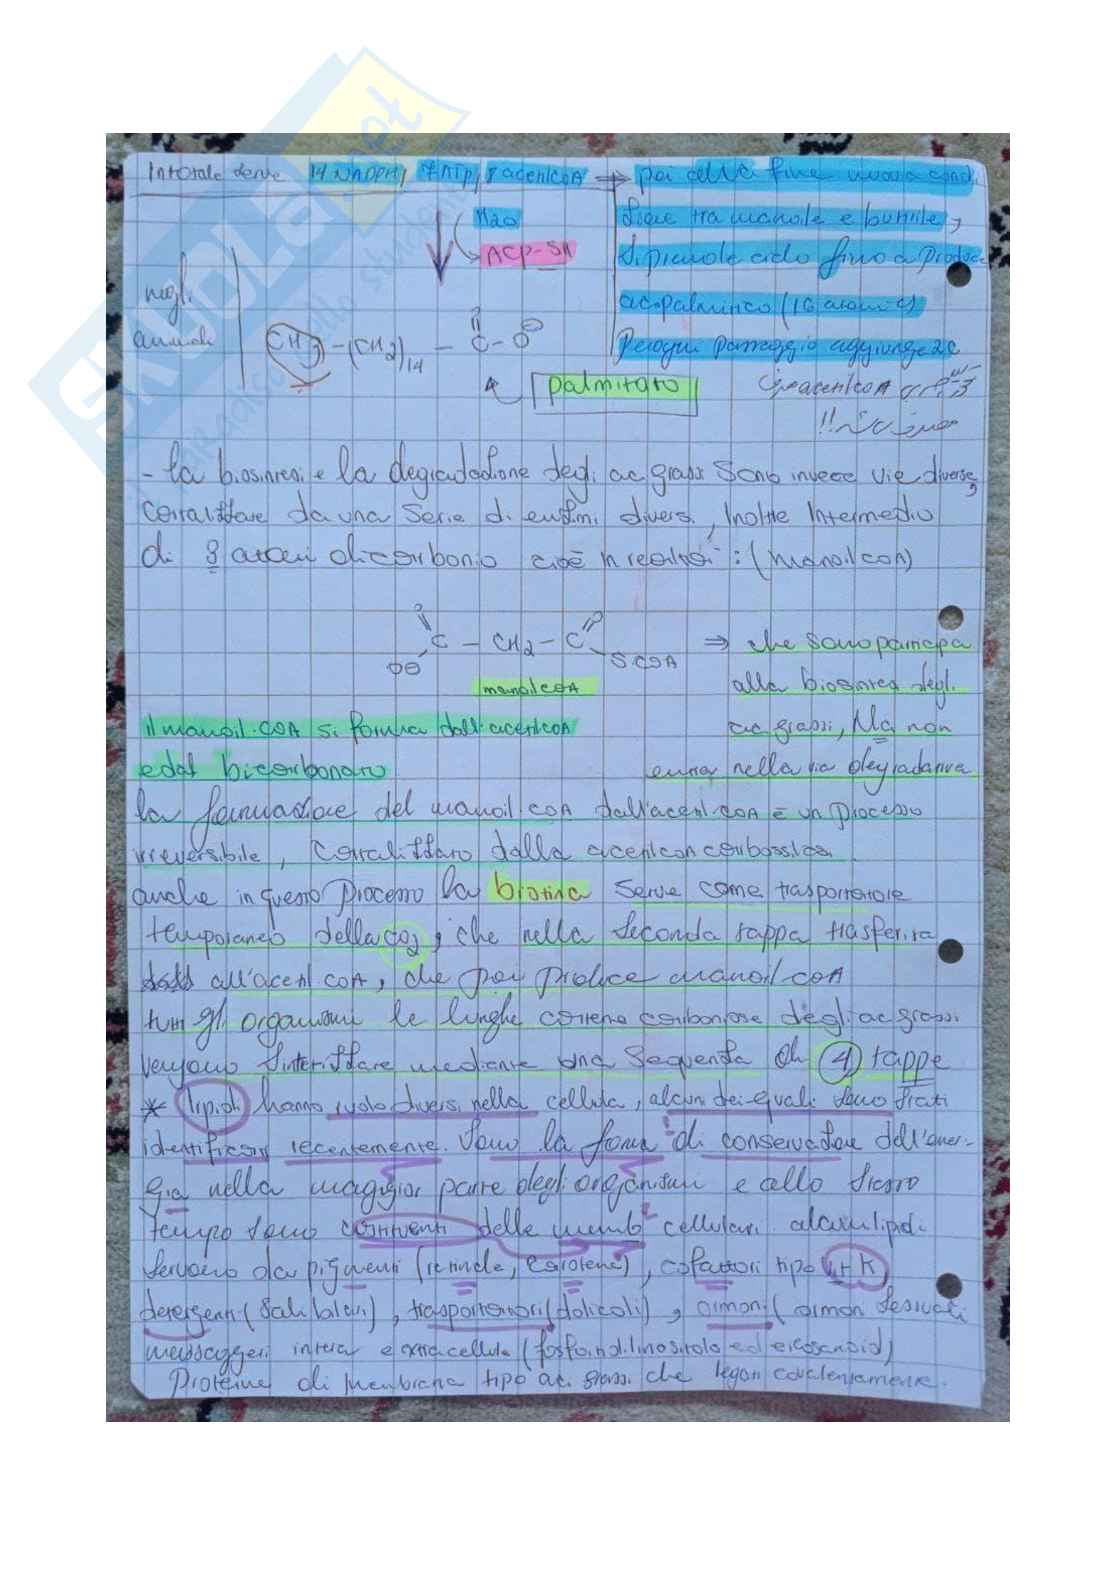 In totale serve 14 NADPH, 7 ATP, 8 acetilcoA → poi della fine nuova condi
H2O
sione tra manoile e butirrile,
ACP-SH
si prende ciclo fino a produce
negli
animali
ac palmitico (16 atomi C)
CH3 - (CH2)14 - C - O⊖
O
Per ogni passaggio aggiunge 2C
palmitato
acetilcoA
- la biosintesi e la degradazione degli ac grassi sono invece vie diverse,
catalizzate da una serie di enzimi diversi, Inoltre Intermedio
di 3 atomi di carbonio cioè in realtà : (manoil coA)
O
O
C - CH2 - C
O⊖
S.COA
⇒ che sono partecipa
manoilcoA
alla biosintesi degli
il manoil.COA si forma dall'acetilcoA
ac grassi, Ma non
e dal bicarbonato
entra nella via degradativa
la formazione del manoil coA dall'acetil coA è un processo
irreversibile, catalizzato dalla acetilcoA carbossilasi
anche in questo processo la biotina serve come trasportatore
temporaneo della CO2, che nella seconda tappa trasferira
all'acetil coA, che poi produce manoil coA
tutti gli organismi le lunghe catene carboniose degli ac grassi
vengono sintetizzate mediante una sequenza di 4 tappe
* lipidi hanno ruolo diversi nella cellula, alcuni dei quali sono stati
identificati recentemente. Sono la forma di conservazione dell'ener-
gia nella maggior parte degli organismi e allo stesso
tempo sono costituenti delle memb cellulari. alcuni lipidi
servono da pigmenti (retinale, carotene), cofattori tipo vit K,
detergenti (sali biliari), trasportatori (dolicoli), ormoni (ormoni sessuali
messaggeri intra e extracellula (fosfatidilinositolo ed eicosanoidi)
Proteine di membrana tipo ac. grassi che legati covalentemente.